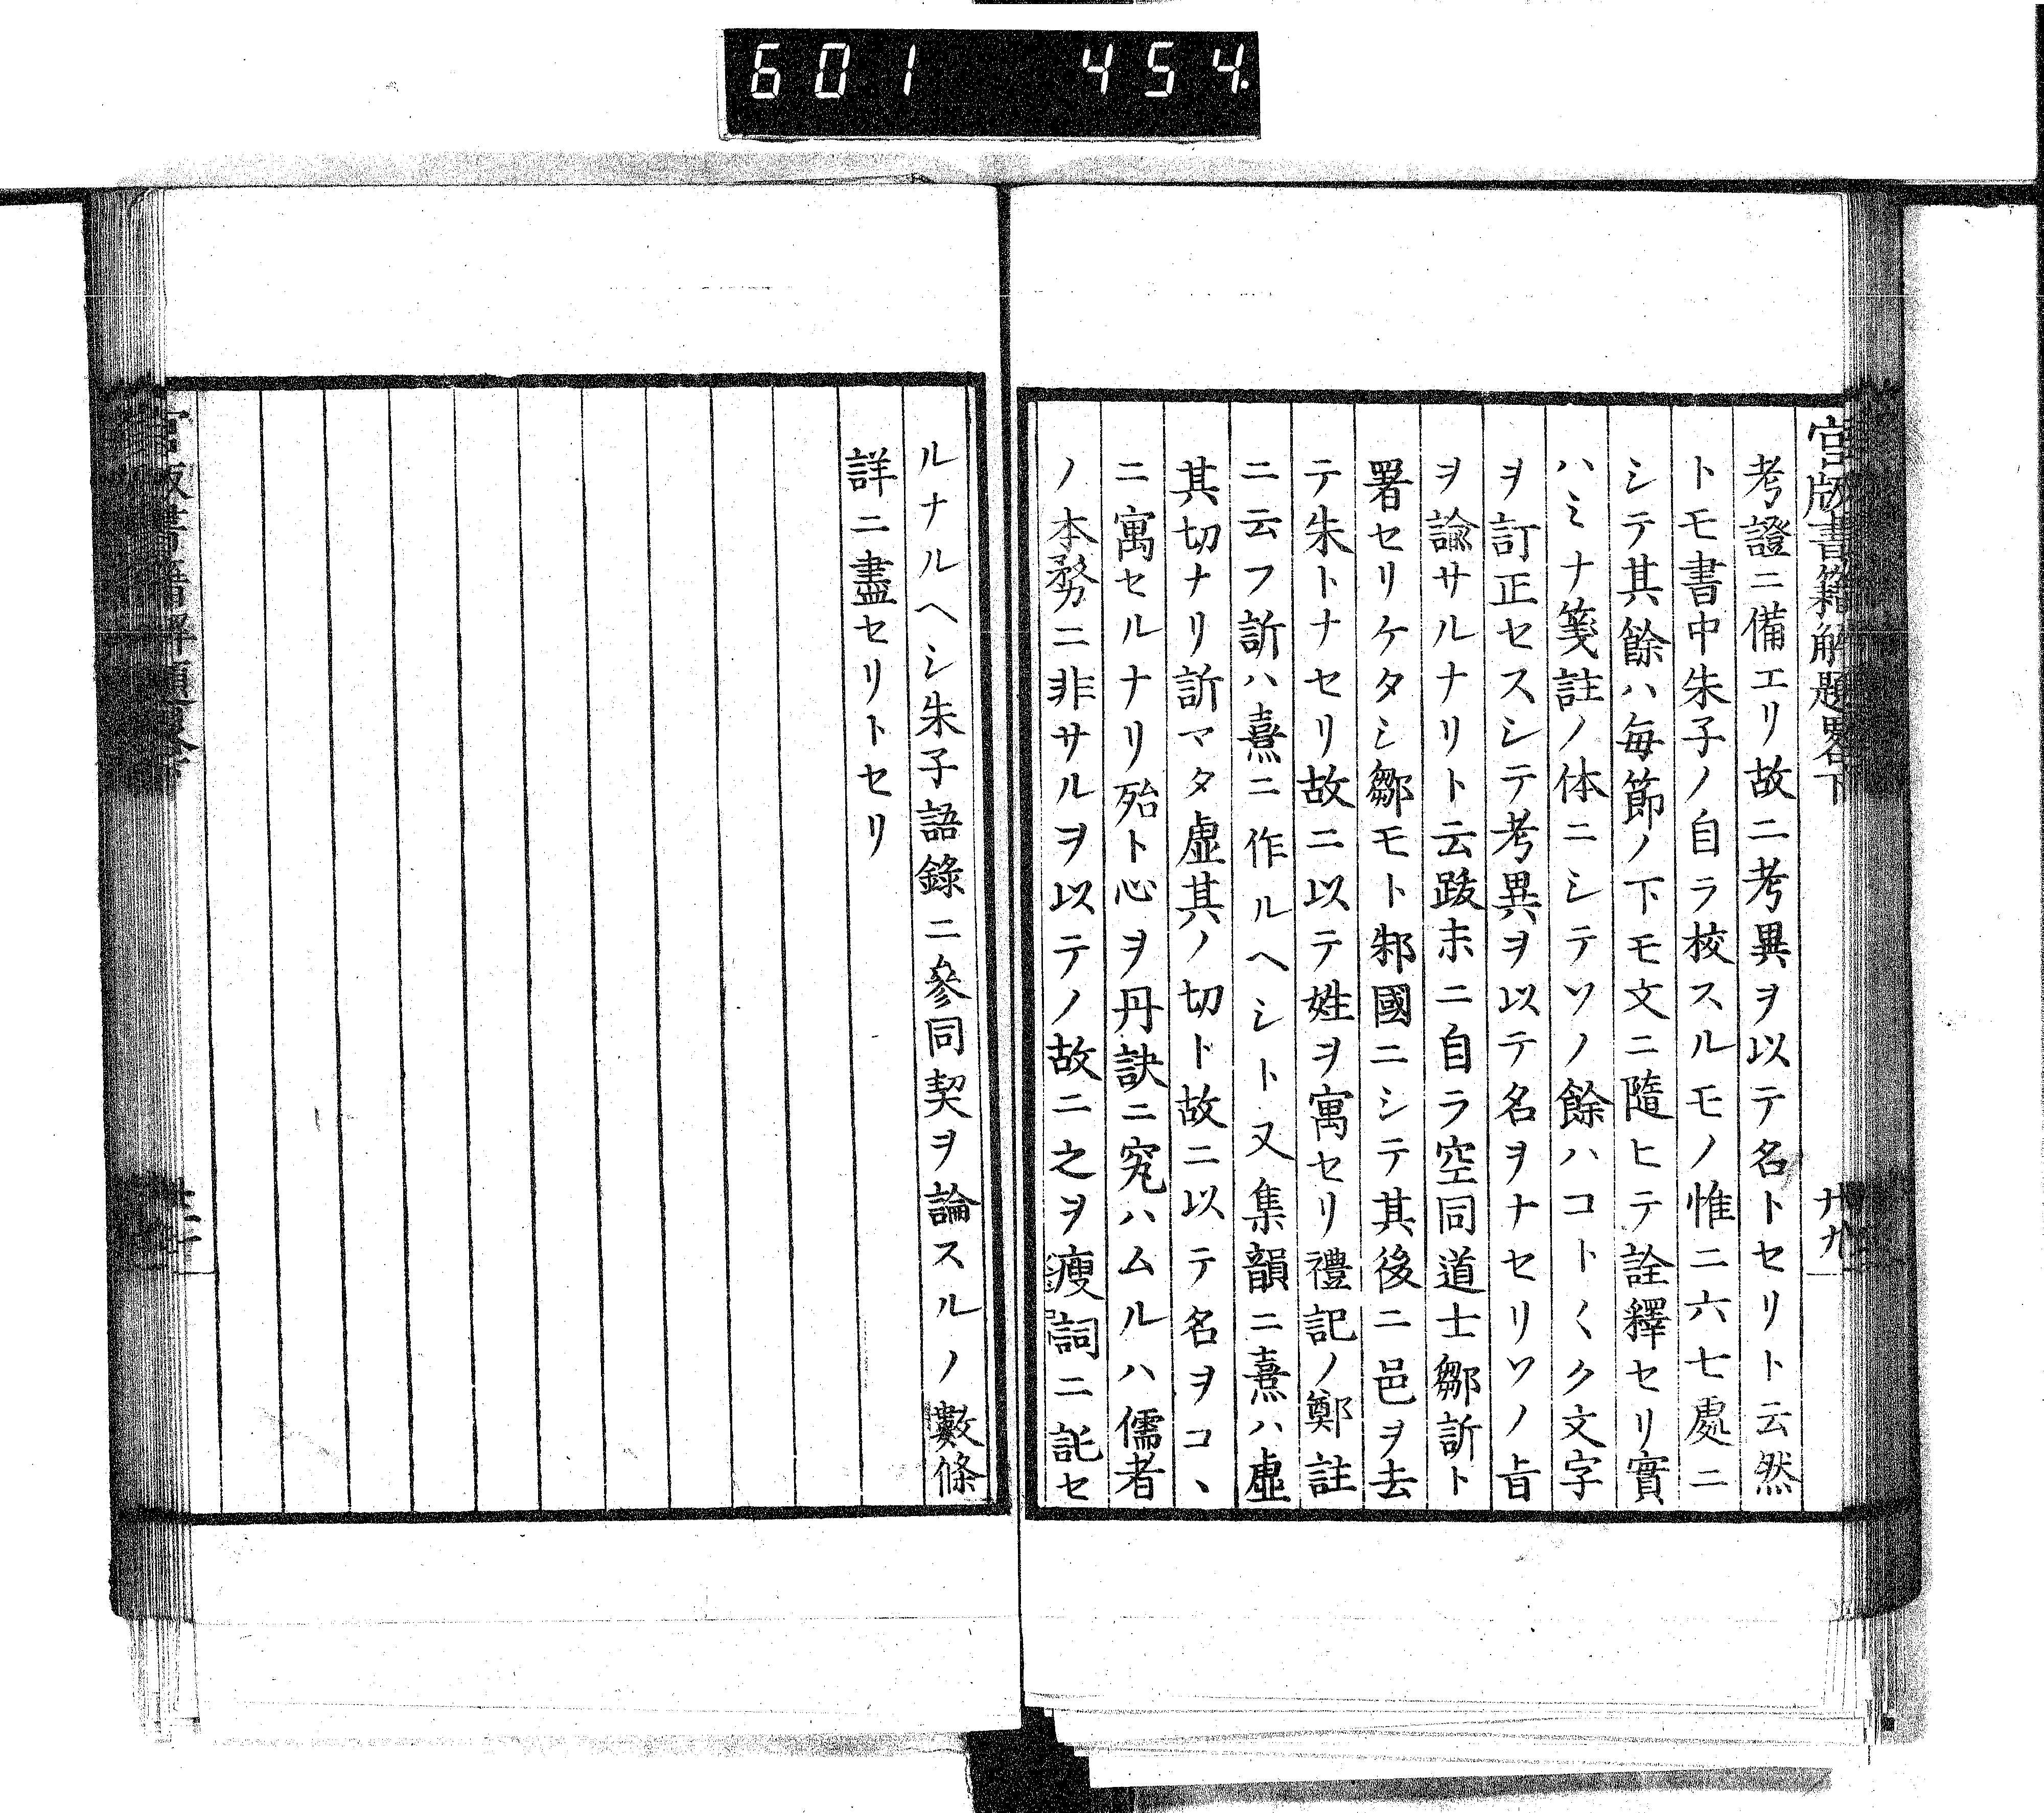 601 454
官版書籍解題畧下
考證ニ備エリ故ニ考異ヲ以テ名トセリト云然
トモ書中朱子ノ自ラ校スルモノ惟ニ六七處ニ
シテ其餘ハ每節ノ下モ文ニ隨ヒテ詮釋セリ實
ハミナ箋註ノ体ニシテソノ餘ハコト〱ク文字
ヲ訂正セスシテ考異ヲ以テ名ヲナセリソノ㫖
ヲ諭サルナリト云跋末ニ自ラ空同道士鄒訢ト
署セリケタシ鄒モト邾國ニシテ其後ニ邑ヲ去
テ朱トナセリ故ニ以テ姓ヲ寓セリ禮記ノ鄭註
ニ云フ訢ハ熹ニ作ルヘシト又集韻ニ熹ハ虛
其切ナリ訢マタ虛其ノ切ト故ニ以テ名ヲコヽ
ニ寓セルナリ殆ト心ヲ丹訣ニ究ハムルハ儒者
ノ本務ニ非サルヲ以テノ故ニ之ヲ瘦詞ニ託セ
廿九
ルナルヘシ朱子語錄ニ參同契ヲ論スルノ數條
詳ニ盡セリトセリ